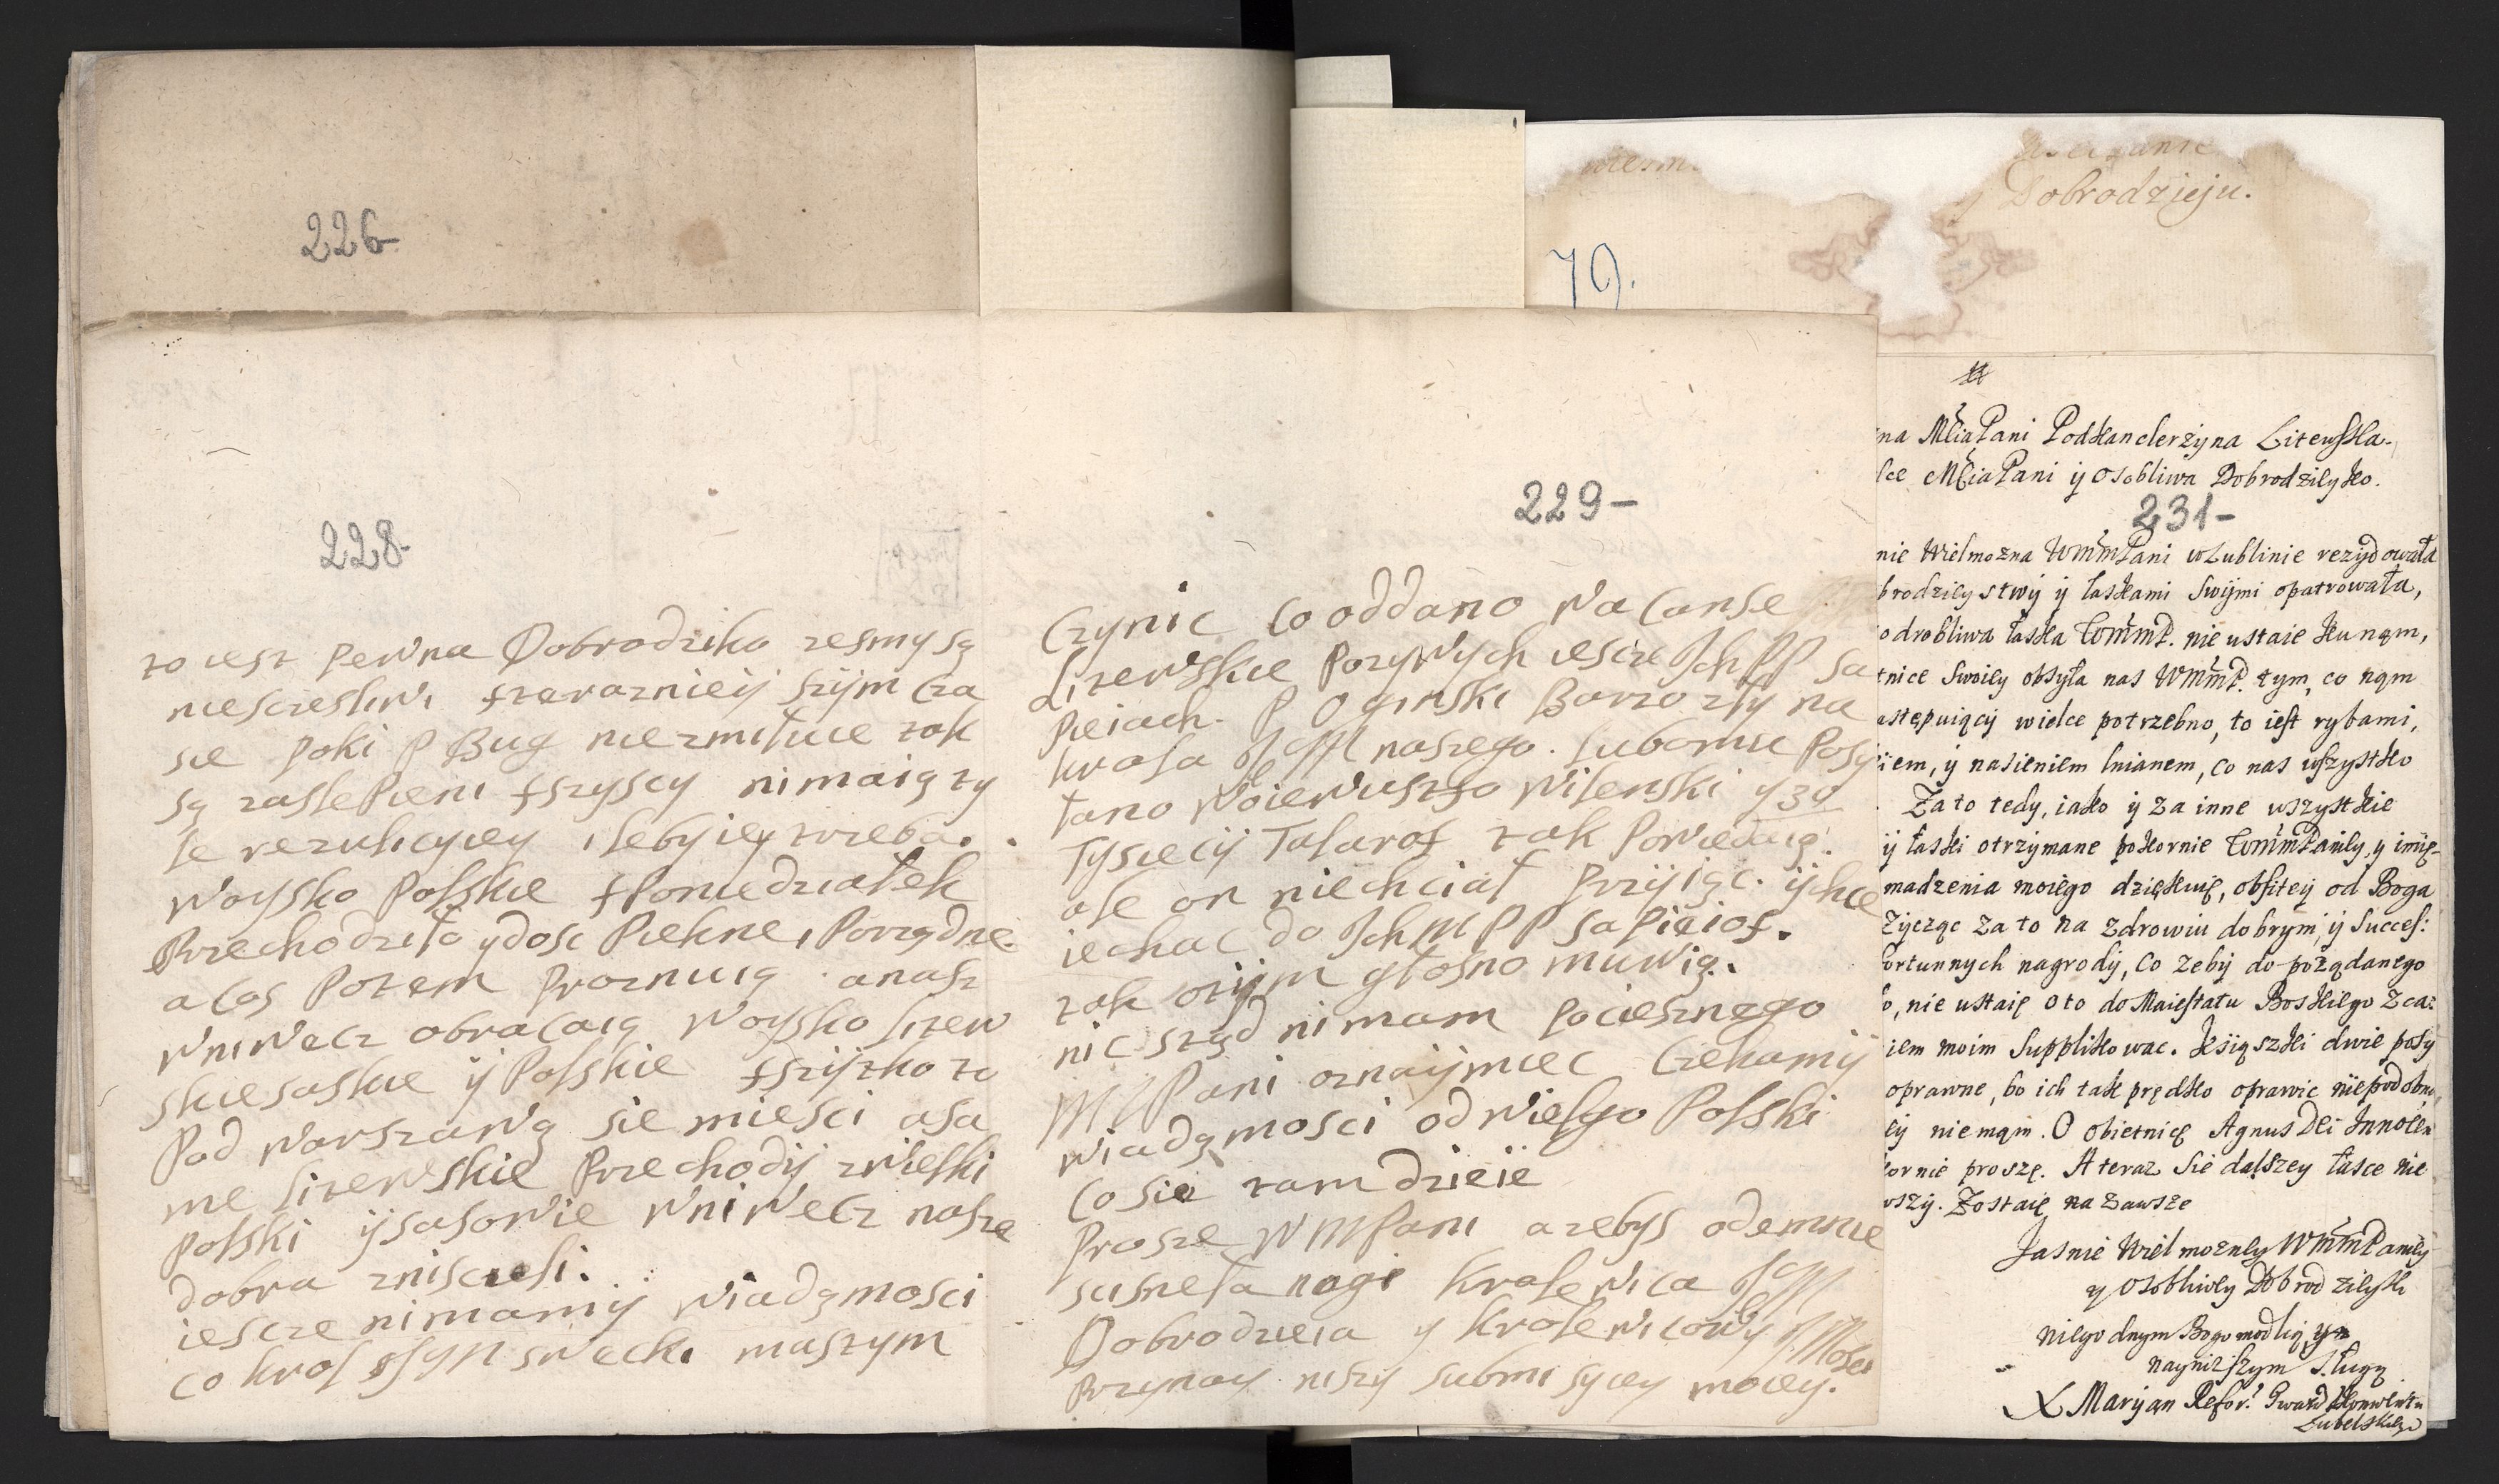 226
228
to iest pewna Dobrodziko zesmy są
niesczesliwi fterazniey szym cza
sie poki P Bug niezmiłuie tak
są zaslepieni fszyscy nimaią ty
le rezulucyey ileby iey trzeba.
Woysko Polskie fPoniedziałek
Przechodziło ydosc Piekne, Porządne
acos Potem Proznuią anasz
wniwecz obracaią Woysko litew
skie saskie ij Polskie fszijtko to
Pod Warszawą sie miesci asa
me litewskie Przechodij zwielki
Polski ij sasowie wniwecz nasze
dobra znisczeli.
iescze nimamij wiadąmosci
co krol swecki masztym
229
Czynic co oddano Wacanse
Litewskie Pozywych iescze Ich PP Sa
Pieiach. P Oginski Barzo zły na
krola naszego. lubomu Posy
łano Woiewustfo Wilenski y 30
Tysiecij Talarof tak Powiedaią.
ale on niechciał Przijiąc. ij chce
iechac do Ich M PP Sapieiof.
tak otijm głosno muwią.
nic sząd nimam Pociesznego
M Pani oznaijmiec Czekamij
wiadąmosci odwielgo Polski
co sie tam dzieie
Prosze W M Pani azebys odemnie
scisneła nogi Krolewica
Dobrodzieia y Krolewicowy J Mosci
Przynay niszy submi syiey moiey.
79.
Dobrodzieju.
na MciaPani Podkanclerzyna Litewska.
lce MciaPani ij Osobliwa Dobrodzieyko.
231
nie Wielmozna WmmPani wLublinie rezydowała
brodzieystwy ij łaskami Swijmi opatrowała,
odrobliwa łaska WmmP. nie ustaie ku nąm,
tnice Swoiey obsyła nas WmmP. tym, co nąm
astępuiącij wielce potrzebno, to iest rybami,
iem, ij nasieniem lnianem, co nas wszystko
Za to tedy, iako ij za inne wszystkie
ij łaski otrzijmane pokornie WmmPaniey, y imię-
madzenia moiego dziękuię, obfitey od Boga
zijcząc za to na zdrowiu dobrijm, ij Succes:
ortunnych nagrodij, Co zebij do pożądanego
o, nie ustaię o to do Maiestatu Boskiego z ca:
iem moim Supplikowac. Ksiąszki dwie posy
oprawne, bo ich tak prędko oprawic niepodobna,
eij niemąm. O obietnicę Agnus Dei Innocen
ornie proszę. A teraz Sie dalszey łasce nie
wszij. Zostaię na zawsze
Jasnie Wielmozney WmmPaniey
y Osobliwey Dobrodzieyki
niegodnym Bogomodlią y
nayniższym Sługą
X Maryan Refor: Gward Konwentu
Lubelskiego